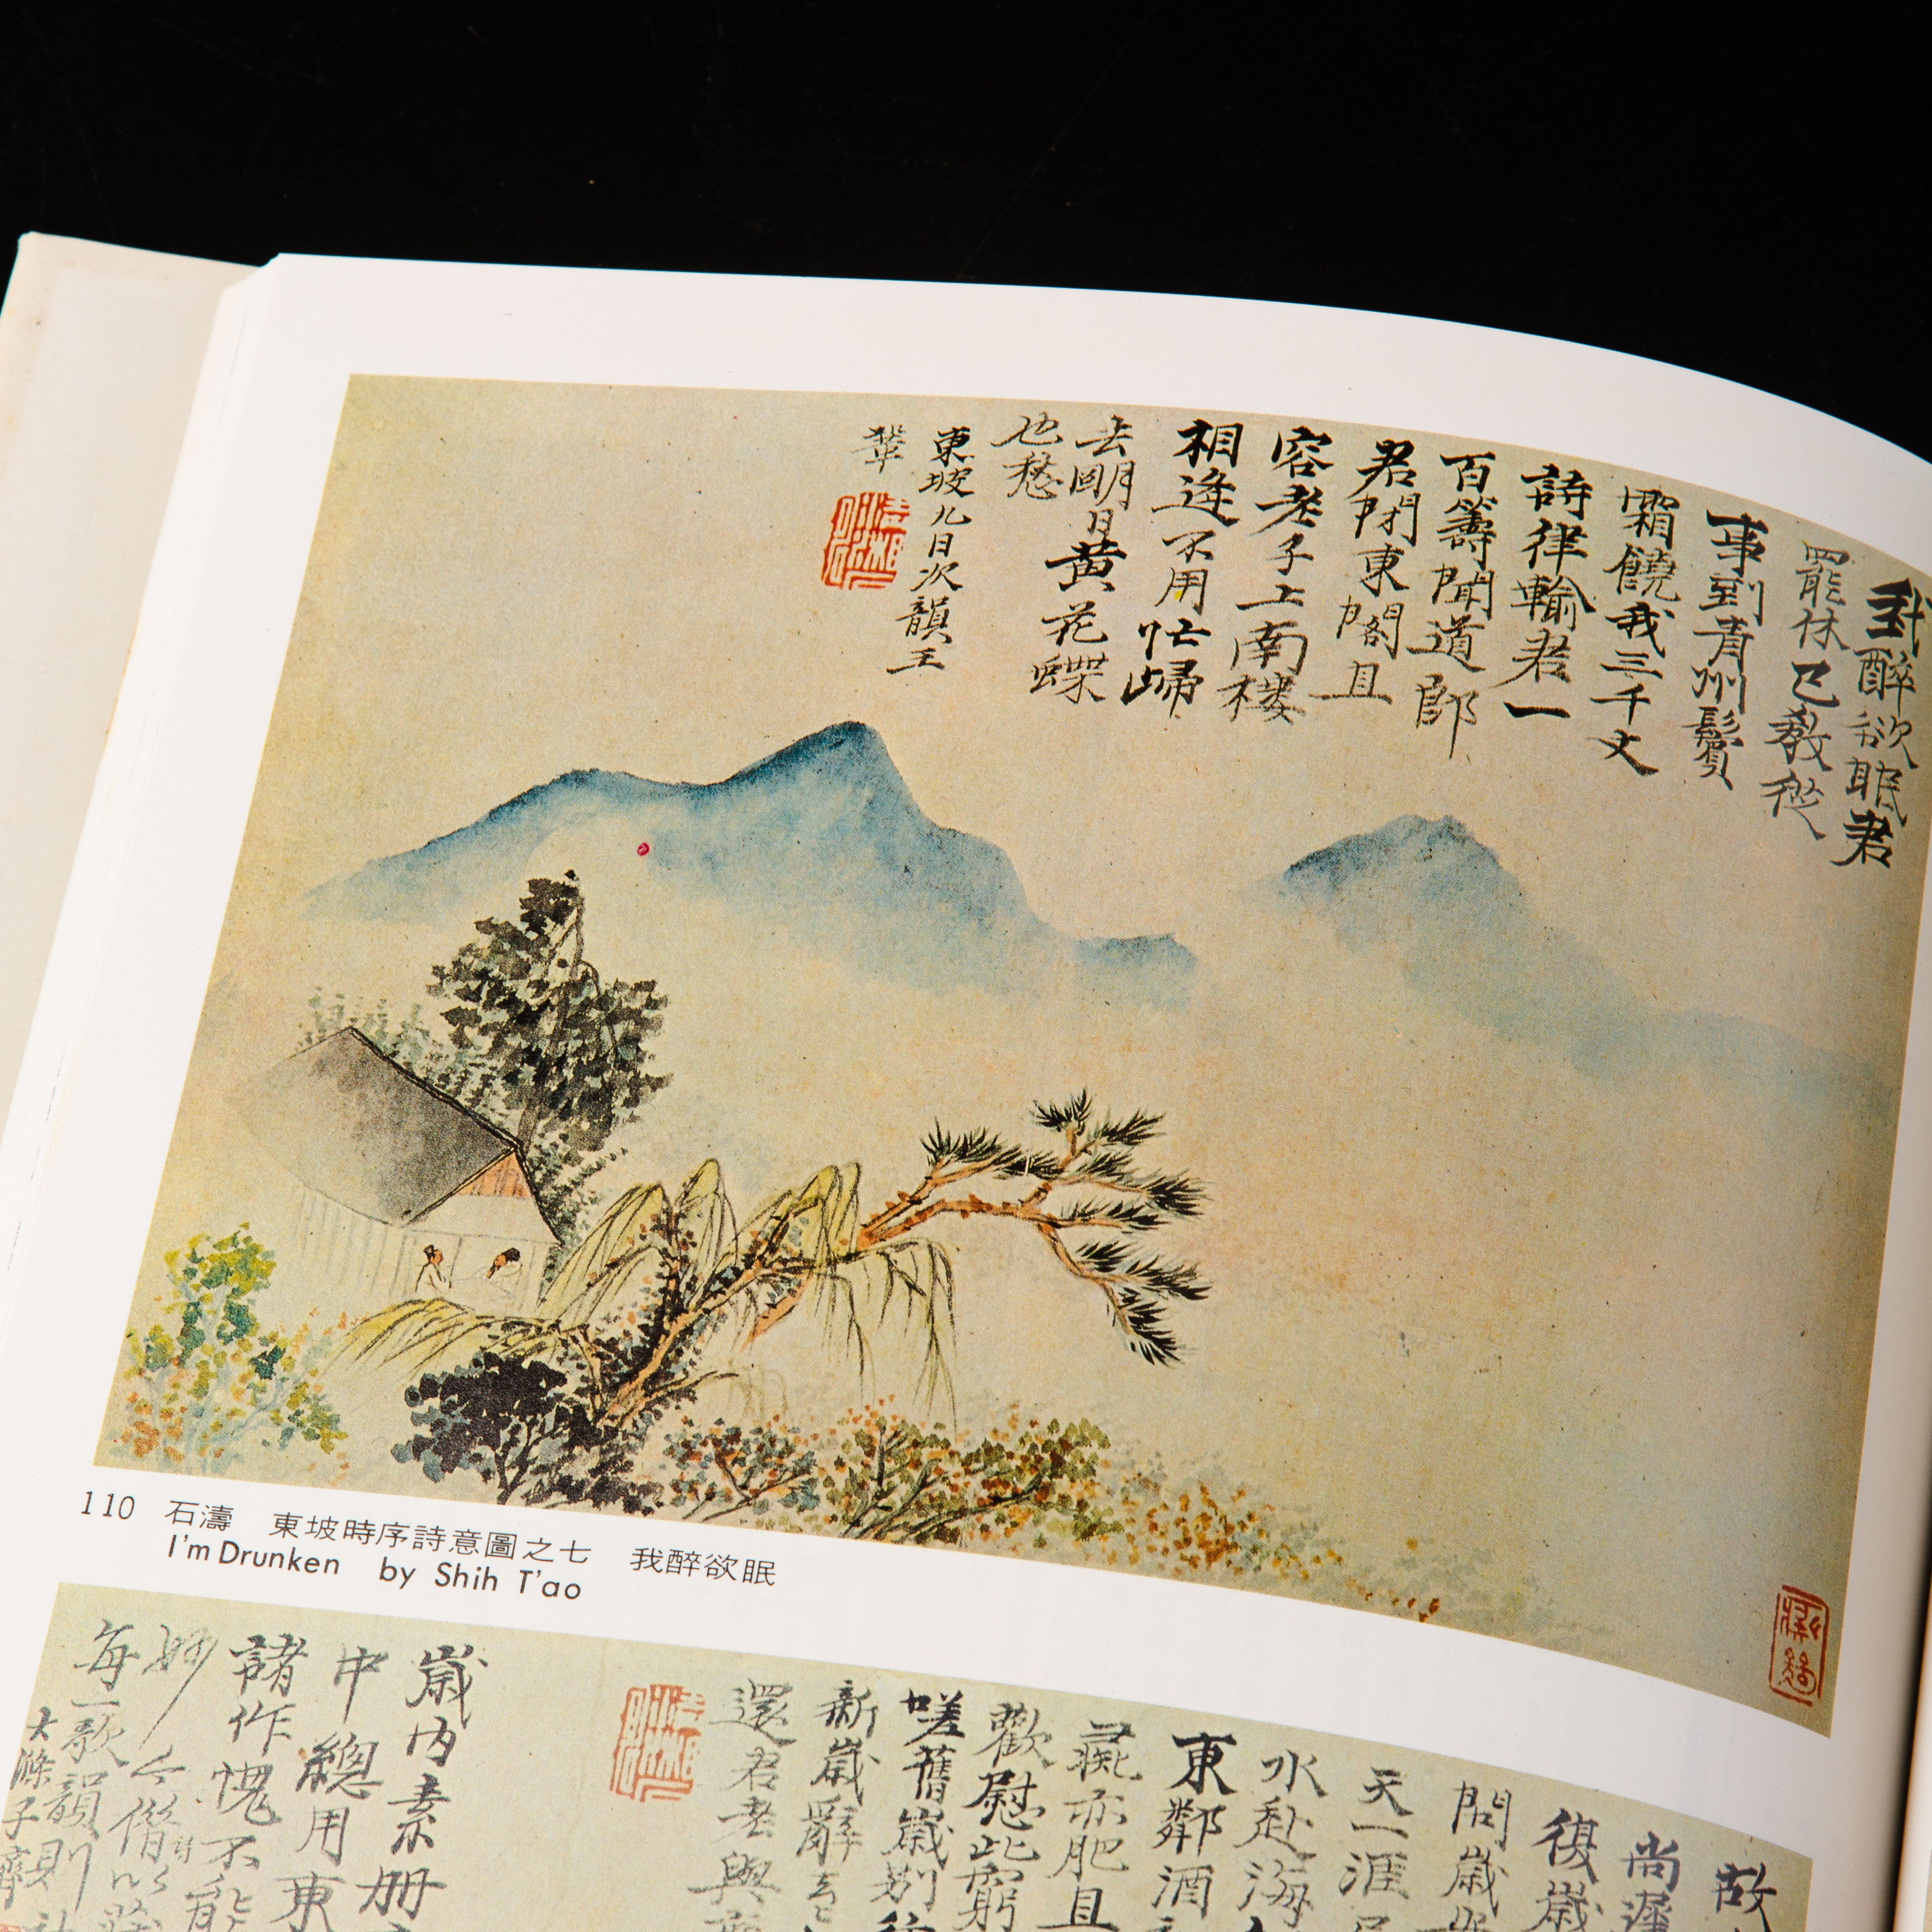 我醉欲眠君
罷休已教從
事到青州鬢
霜饒我三千丈
詩律輸君一
百籌聞道郎
君閉東閣且
容老子上南楼
相逢不用忙歸
去明日黃花蝶
也愁
東坡九日次韻王
鞏
110 石濤 東坡時序詩意圖之七 我醉欲眠
I'm Drunken by Shih T'ao
故
尚遲
復歲
問歲
天一涯
水赴海
東鄰酒
彘亦肥且
歡慰此窮
嗟舊歲別
新歲辭去
還君老與
歲内素冊
中總用東
諸作愧不能
妙
每一歌韻則
大滌子濟